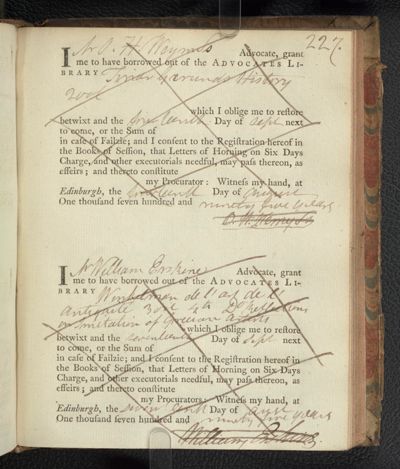 227.
I Mr J. H. Wemyss Advocate, grant
me to have borrowed out of the ADVOCATES LI-
BRARY History
2 vols
which I oblige me to reſtore
betwixt and the Day of Sept next
to come, or the Sum of
in caſe of Failzie; and I conſent to the Regiſtration hereof in
the Books of Seſſion, that Letters of Horning on Six Days
Charge, and other executorials needful, may paſs thereon, as
effeirs; and thereto conſtitute
my Procurator: Witneſs my hand, at
Edinburgh, the Day of August
One thouſand ſeven hundred and ninety five years
Wemyss
I Mr William Erskine Advocate, grant
me to have borrowed out of the ADVOCATES LI-
BRARY Winkelman de l'art de l'
Antiquité 3 vol 4to Do Reflections
on imitation of Grecian Artists
which I oblige me to reſtore
betwixt and the seventeenth Day of Sept next
to come, or the Sum of
in caſe of Failzie; and I conſent to the Regiſtration hereof in
the Books of Seſſion, that Letters of Horning on Six Days
Charge, and other executorials needful, may paſs thereon, as
effeirs; and thereto conſtitute
my Procurators: Witneſs my hand, at
Edinburgh, the seventeenth Day of Augt
One thouſand ſeven hundred and ninety five years
William Erskine